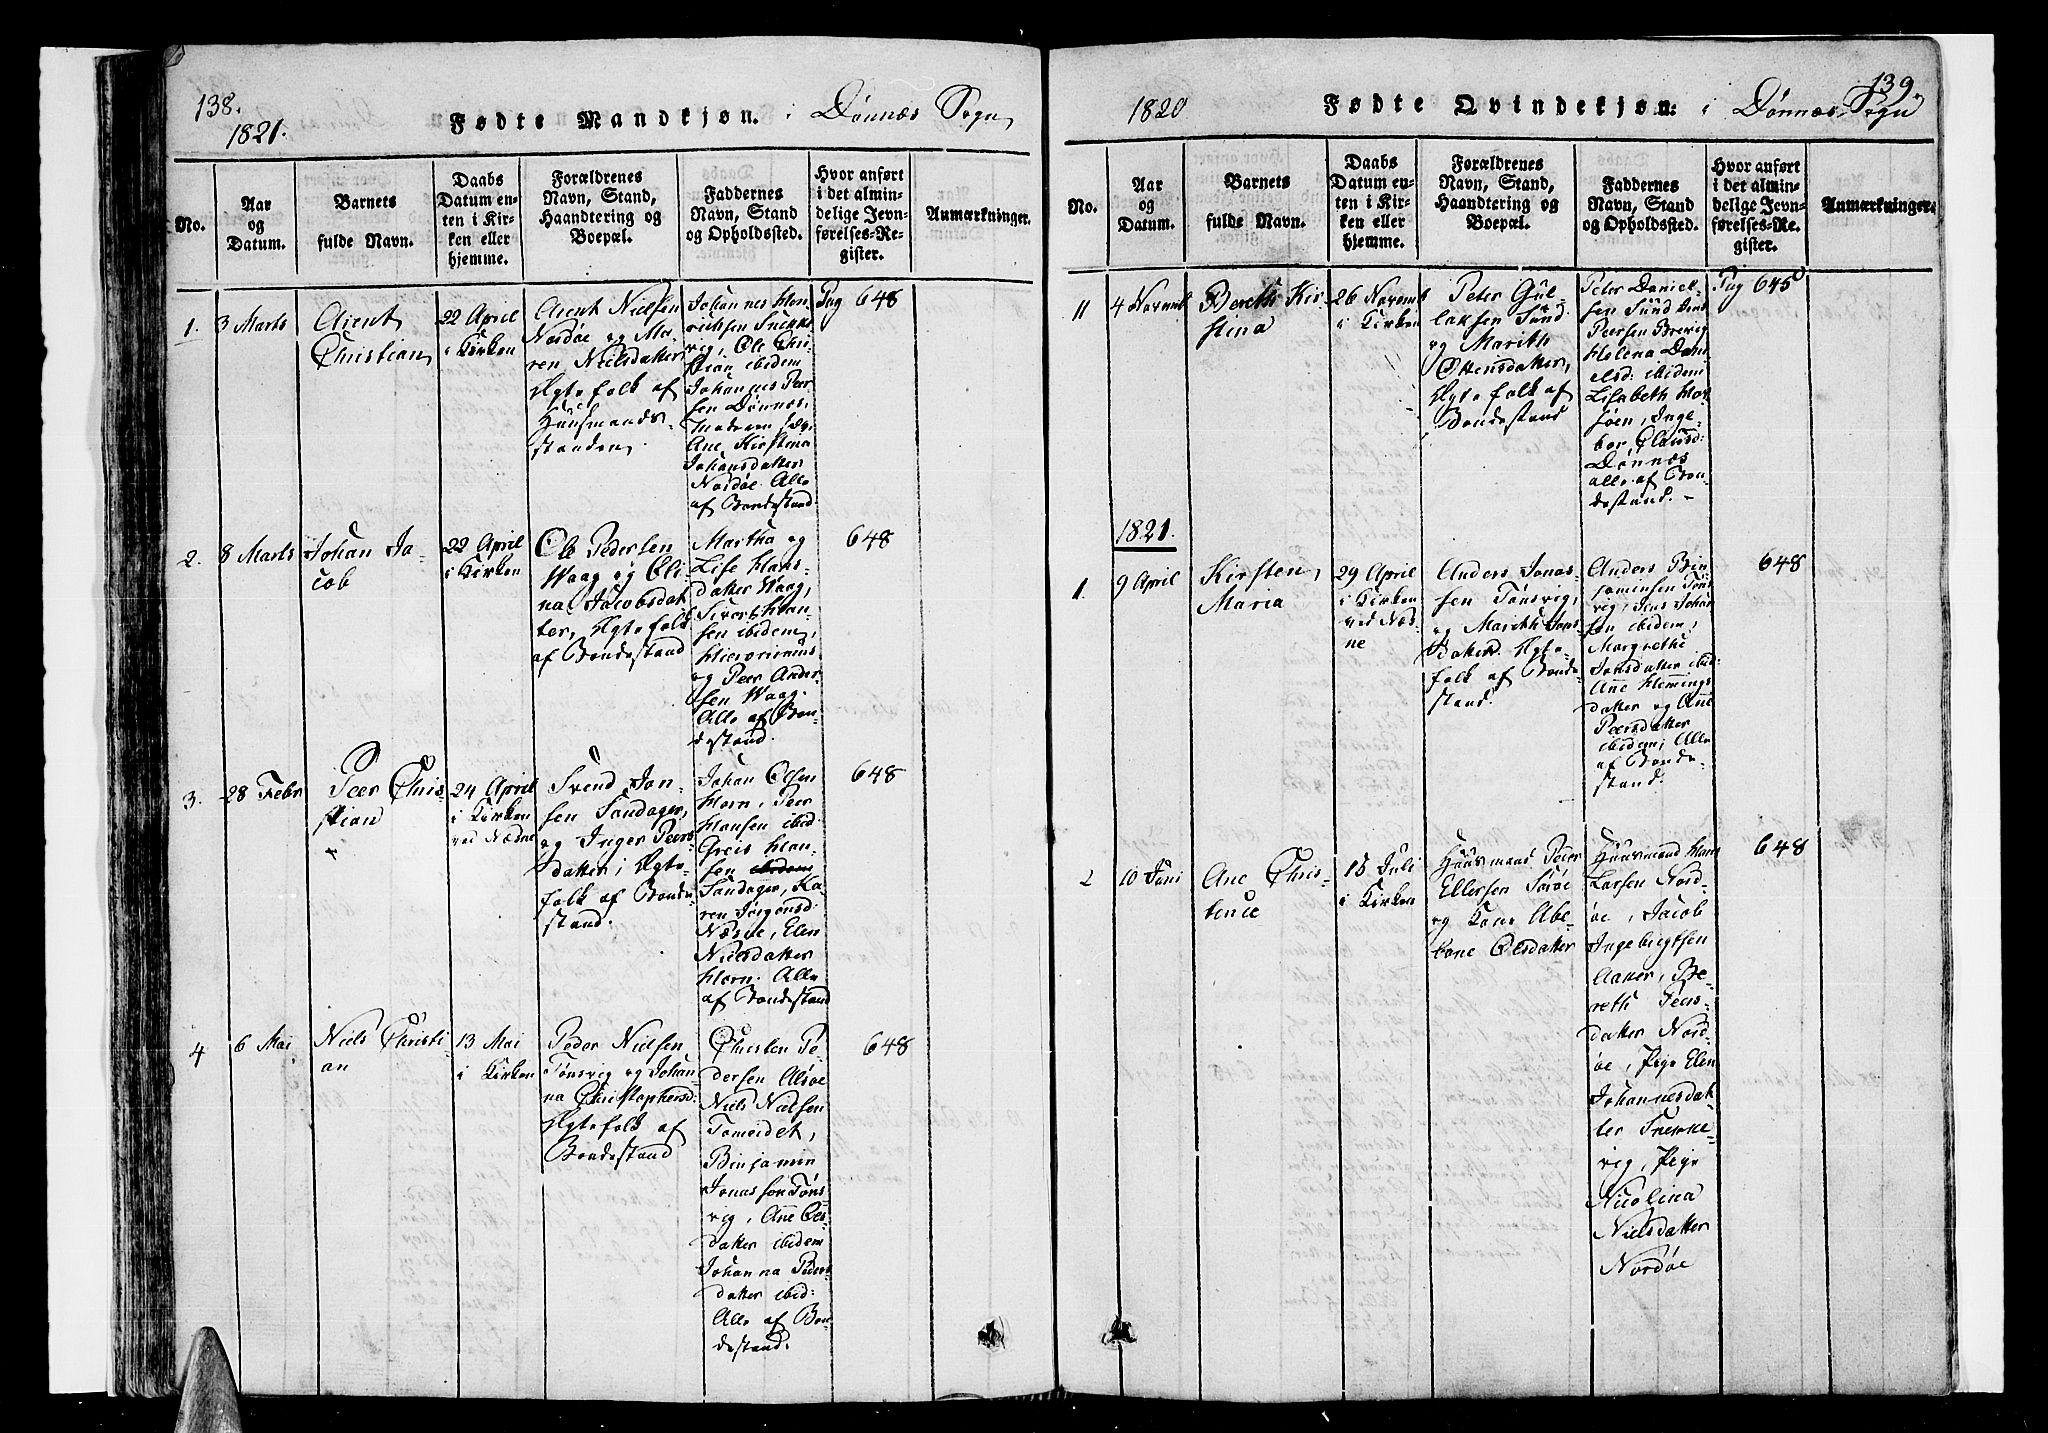 138.
1821.
Fødte Mandkjøn. i Dønnæs Sogn
No.
Aar
og
Datum.
Barnets
fulde Navn.
Daabs
Datum en-
ten i Kir-
ken eller
hjemme.
Forældrenes
Navn, Stand,
Haandtering og
Boepæl.
Faddernes
Navn, Stand
og Opholdssted.
Hvor anført
i det almin-
delige Jevn-
førelses-Re-
gister.
Anmærkninger.
1.
3 Marts
Arent
Christian
22 April
i Kirken
Arent Nielsen
Nordøe og Ma-
ren Nielsdatter
Ægtefolk af
Huusmands
standen
Johannes Hen-
richsen Snekke
vig, Ole Chri-
stian ibidem
Johannes Peer
sen Dønnes,
Ane Kirstina
Johansdatter
Nordøe. Alle
af Bondestand
Pag 648
2.
8 Marts
Johan Ja-
cob
22 April
i Kirken
Ole Pedersen
Waag og Eli-
na Jacobsdat
ter, Ægtefolk
af Bondestand
Martha og
Lise Hans-
datter Waag,
Sivert Han-
sen ibidem,
Hieronimus
og Peer Ander
sen Waag.
Alle af Bon-
destand.
648
3.
28 Febr
Peer Chris-
stian
24 April
i Kirken
ved Næsne
Svend Jon-
sen Sandager,
og Inger Peers
datter, Ægte-
folk af Bonde
stand.
Johan Olsen
Horn, Peer
Hansen ibid
Greis Han-
sen ibidem
Sandager, Ka-
ren Jørgensd:
Næsne, Elen
Nielsdatter
Horn. Alle
af Bondestand
648
4
6 Mai
Niels Christi-
an
13 Mai
i Kirken
Peder Nielsen
Tønsvig og Johan
na Christophersd:
Ægtefolk af
Bondestand
Christen Pe-
dersen Alsøe
Niels Nielsen
Tomeidet,
Binjamin
Jonassøn Tøns-
vig, Ane Ols-
datter ibidem
Johanna Peders
datter ibid:
Alle af Bon-
destand.
648
139.
1820
Fødte Qvindekjøn: i Dønnæs Sogn
No.
Aar
og
Datum.
Barnets
fulde Navn.
Daabs
Datum en-
ten i Kir-
ken eller
hjemme.
Forældrenes
Navn, Stand,
Haandtering og
Boepæl.
Faddernes
Navn, Stand
og Opholdssted.
Hvor anført
i det almin-
delige Jevn-
førelses-Re-
gister.
Anmærkninger.
11
4 Novemb
Bereth Kir-
stina
26 Novemb
i Kirken
Peter Gul-
laksen Sund
og Marith
Ottensdatter,
Ægtefolk af
Bondestand
Peter Daniel-
sen Sund
Peersen Brevig
Helena Dani-
elsd: ibidem
Lisabeth
Inge-
bor Clausd:
Dønnæs
alle af Bon-
destand. -
Pag 645
1821.
1.
9 April
Kirsten
Maria
29 April
i Kirken
ved Næs-
ne
Anders Jonas-
sen Tønsvig,
og Marith Jons-
datter. Ægte-
folk af Bonde-
stand.
Anders Bin-
jaminsen Tøns
vig, Jens Johan
sen ibidem,
Margrethe
Jonsdatter ibid:
Ane Flemings
datter og Ane
Peersdatter
ibidem, Alle
af Bonde-
stand.
648
2
10 Juni
Ane Chris-
tence
15 Juli
i Kirken
Huusmand Peter
Ellersen Sørøe
og Kone Abe-
lone Olsdatter
Huusmand Hans
Larsen Nord-
øe, Jacob
Ingebrigtsen
Aaker, Be-
reth Peers-
datter Nord-
øe, Pige Elen
Johannesdat-
ter Snekke-
vig, Pige
Nicolina
Nielsdatter
Nordøe
648